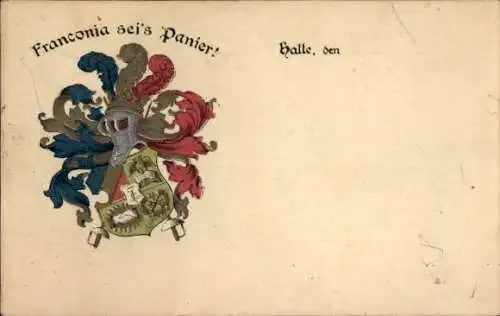 Franconia sei's Panier!
Halle, den